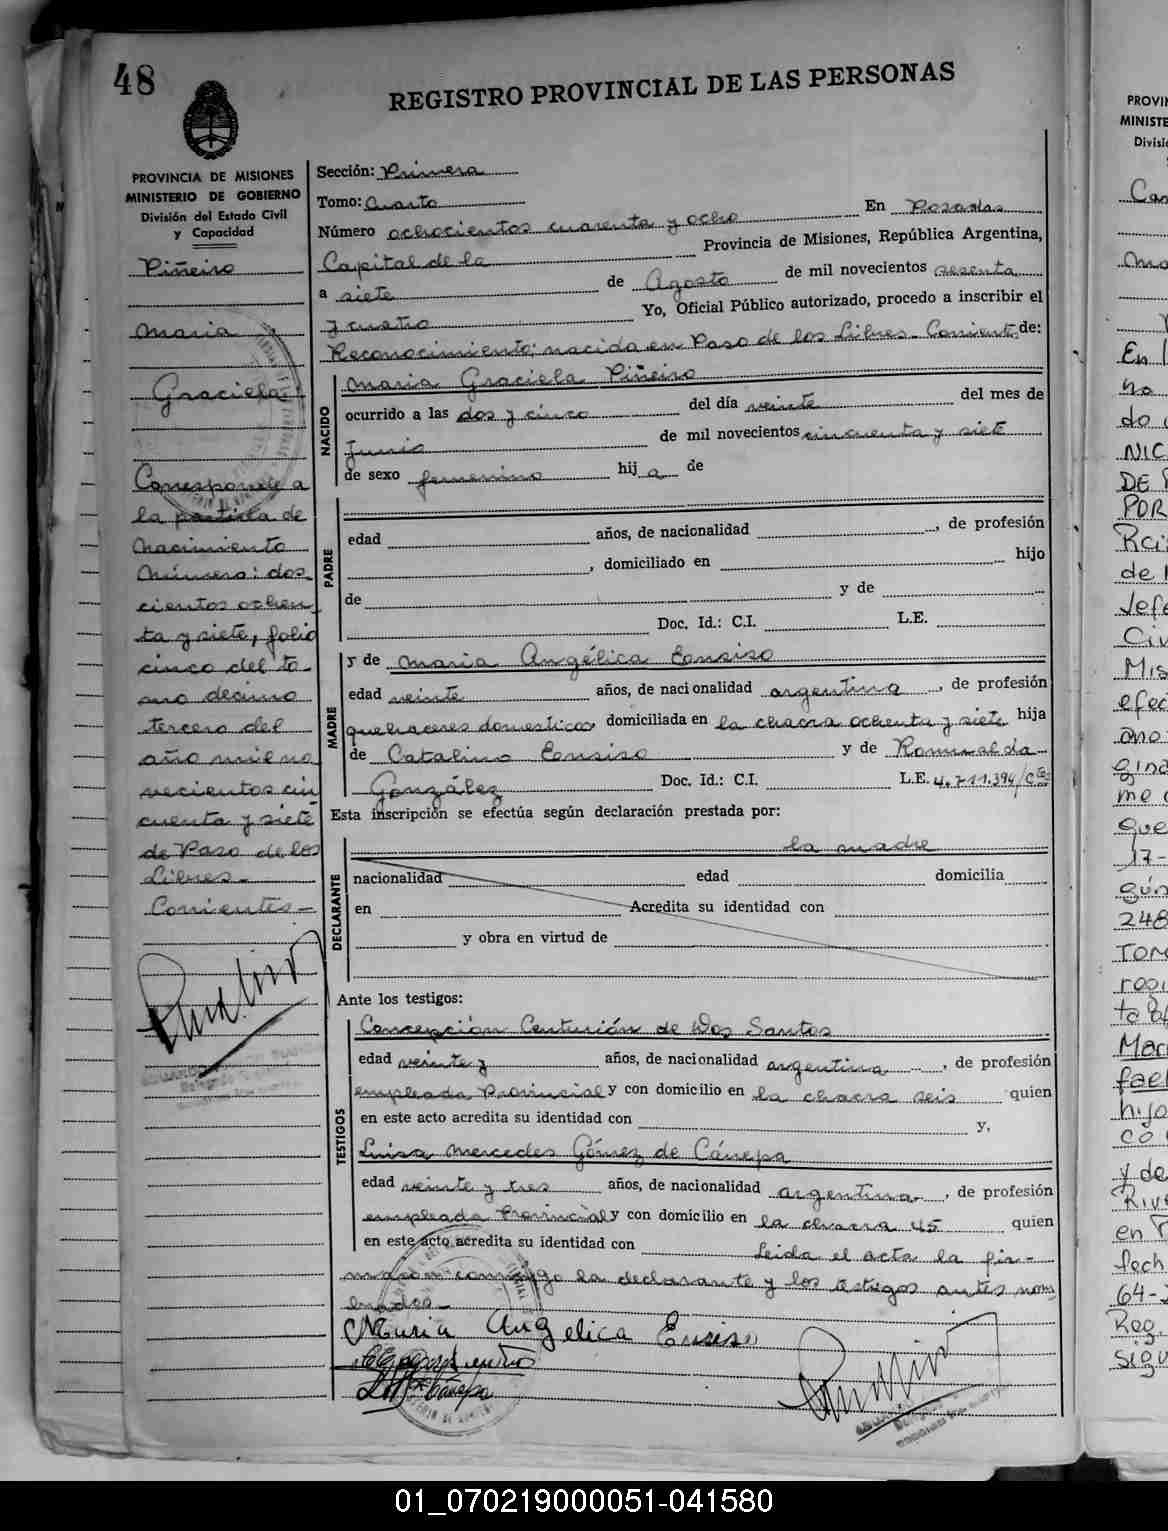 48
REGISTRO PROVINCIAL DE LAS PERSONAS
PROVINCIA DE MISIONES
MINISTERIO DE GOBIERNO
División del Estado Civil
y Capacidad
Piñeiro
Maria
Graciela
Corresponde a
la partida de
Nacimiento
Número: dos
cientos ochen
ta y siete, folio
cinco del to-
mo décimo
tercero del
año mil no
vecientos cin
cuenta y siete
de Paso de los
Libres-
Corrientes-
Sección: Primera
Tomo: Cuarto
Número ochocientos cuarenta y ocho En Posadas
Capital de la Provincia de Misiones, República Argentina,
a siete de Agosto de mil novecientos sesenta
y cuatro Yo, Oficial Público autorizado, procedo a inscribir el
Reconocimiento: nacida en Paso de los Libres-Corrientes de:
NACIDO
Maria Graciela Piñeiro
ocurrido a las dos y cinco del día veinte del mes de
Junio de mil novecientos cincuenta y siete
de sexo femenino hij a de
PADRE
edad años, de nacionalidad , de profesión
, domiciliado en hijo
de y de
Doc. Id.: C.I. L.E.
MADRE
y de Maria Angélica Ensiso
edad veinte años, de nacionalidad argentina , de profesión
quehaceres domesticos domiciliada en la chacra ochenta y siete hija
de Catalino Ensiso y de Romualda
González Doc. Id.: C.I. L.E. 4.711.394/C
Esta inscripción se efectúa según declaración prestada por:
DECLARANTE
la madre
nacionalidad edad domicilia
en Acredita su identidad con
y obra en virtud de
Ante los testigos:
TESTIGOS
Concepción Centurión de Dos Santos
edad veinte y años, de nacionalidad argentina , de profesión
empleada Provincial y con domicilio en la chacra seis quien
en este acto acredita su identidad con y,
Luisa Mercedes Gómez de Cánepa
edad veinte y tres años, de nacionalidad argentina , de profesión
empleada Provincial y con domicilio en la chacra 45 quien
en este acto acredita su identidad con Leida el acta la fir-
maron conmigo la declarante y los testigos antes nom
brados-
Maria Angelica Ensiso
PROVIN
MINISTE
Divisi
En
do
NIC
DE
POR
de
Jefe
Civ
Mis
efec
me
que
17-
248
TOM
Mari
fael
hijo
co
y de
Riv
en
fech
64-
Reg.
01_070219000051-041580